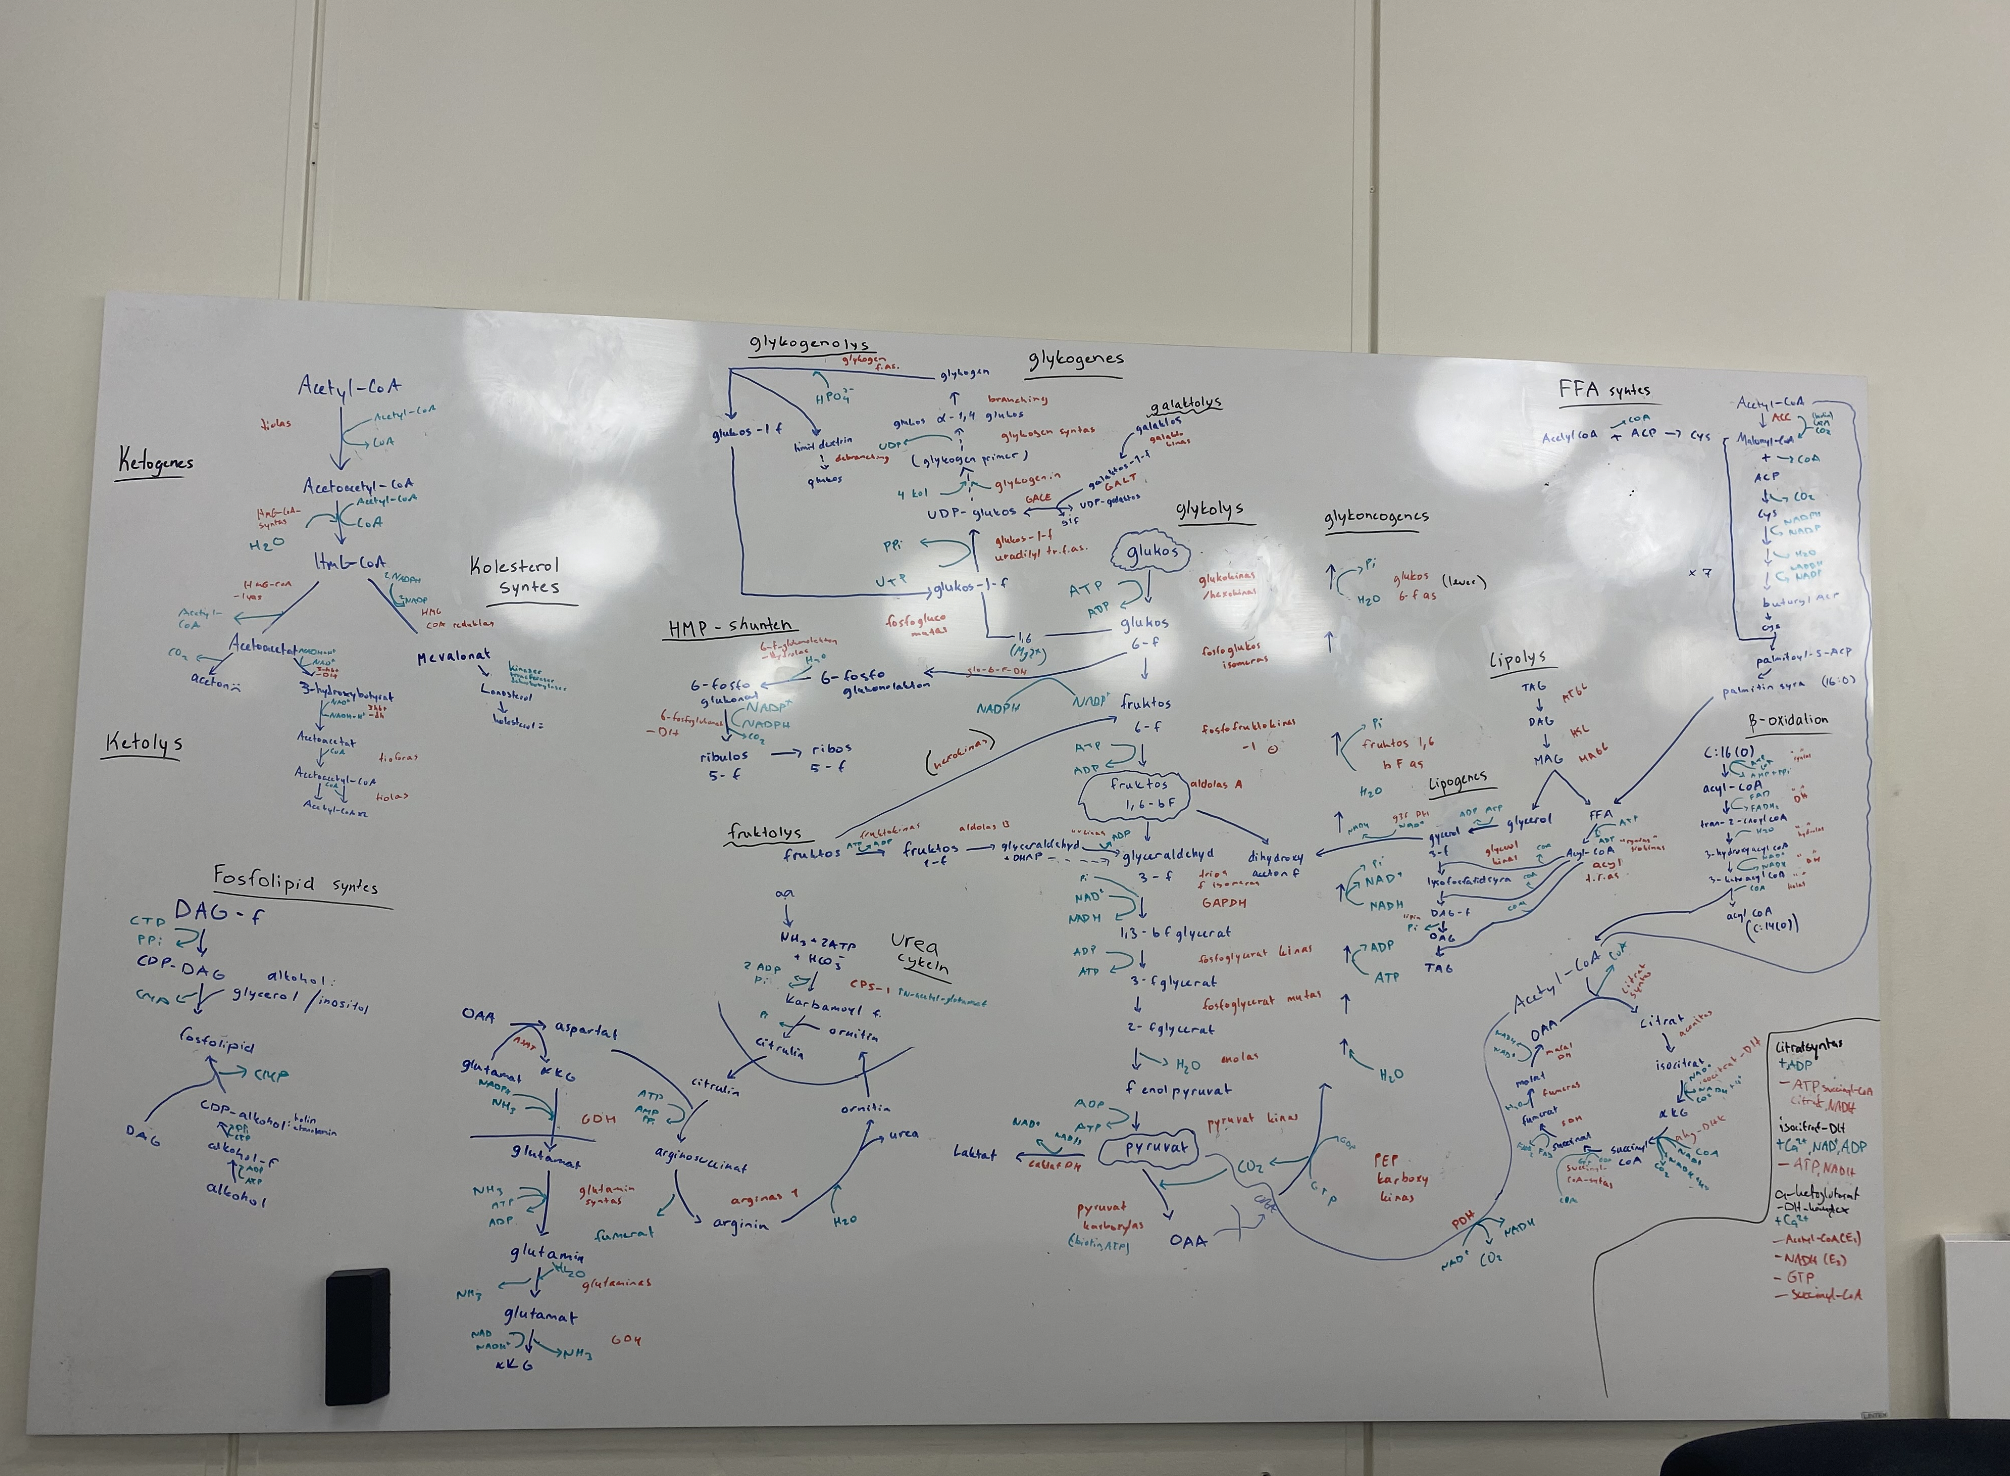 Ketogenes
Acetyl-CoA
tiolas
Acetyl-CoA
CoA
Acetoacetyl-CoA
HMG-CoA-
syntas
Acetyl-CoA
CoA
H2O
HMG-CoA
HMG-CoA
-lyas
2 NADPH
2 NADP
HMG
CoA reduktas
Acetyl-
CoA
Acetoacetat
CO2
aceton
NADH+H+
NAD+
3-hydroxybutyrat
Kolesterol
syntes
Mevalonat
Lanosterol
kolesterol
Ketolys
NAD+
NADH+H+
Acetoacetat
CoA
tioforas
Acetoacetyl-CoA
CoA
tiolas
Acetyl-CoA x2
Fosfolipid syntes
DAG-f
CTP
PPi
CDP-DAG
alkohol:
glycerol/inositol
CMP
fosfolipid
CMP
CDP-alkohol:
DAG
alkohol-f
ADP
ATP
alkohol
glykogenolys
glykogen
f.as.
glykogen
HPO4
glukos-1-f
limit dextrin
debranching
glukos
glykogenes
branching
glukos α-1,4 glukos
UDP
glykogen syntas
(glykogen primer)
4 kol
glykogenin
UDP-glukos
PPi
UTP
glukos-1-f
uradilyl tr.f.as.
glukos-1-f
fosfogluco
mutas
1,6
(Mg2+)
galaktolys
galaktos
galakto
kinas
galaktos-1-f
GALT
GALE
UDP-galaktos
HMP-shunten
6-f-glukonolakton
-Hydrolas
H2O
glu-6-f-DH
6-fosfo
glukonolakton
6-fosfo
glukonat
NADPH
NADP+
6-fosfoglukonat
-DH
NADP+
NADPH
CO2
ribulos
5-f
ribos
5-f
glykolys
glukos
ATP
ADP
glukokinas
/hexokinas
glukos
6-f
fosfoglukos
isomeras
fruktos
6-f
ATP
ADP
fosfofruktokinas
-1
fruktos
1,6-bF
aldolas A
glyceraldehyd
3-f
dihydroxy
aceton f
trios
f isomeras
GAPDH
Pi
NAD+
NADH
1,3-bfglycerat
ADP
ATP
fosfoglycerat kinas
3-fglycerat
fosfoglycerat mutas
2-fglycerat
H2O
enolas
f enolpyruvat
ADP
ATP
pyruvat kinas
pyruvat
NAD+
NADH
Laktat
laktat DH
pyruvat
karboxylas
(biotin, ATP)
CO2
OAA
GDP
GTP
PEP
karboxy
kinas
PDH
NAD+
CO2
NADH
fruktolys
(hexokinas)
fruktos
fruktokinas
ATP
ADP
fruktos
1-f
aldolas B
glyceraldehyd
+ DHAP
ADP
glykoneogenes
Pi
H2O
glukos
6-f as
(lever)
Pi
fruktos 1,6
bF as
H2O
Pi
NAD+
NADH
ADP
ATP
H2O
Urea
cykeln
aa
NH3 + 2ATP
+ HCO3-
2 ADP
Pi
CPS-1
N-acetyl-glutamat
karbamoyl f.
ornitin
citrulin
citrulin
ATP
AMP
PPi
arginosuccinat
fumerat
arginin
arginas
H2O
urea
ornitin
OAA
aspartat
ASAT
glutamat
αKG
NADPH
NH3
GDH
glutamat
NH3
ATP
ADP
glutamin
syntas
glutamin
H2O
NH3
glutaminas
glutamat
NAD
NADH+
GDH
NH3
αKG
Lipolys
TAG
ATGL
DAG
HSL
MAG
MAGL
FFA
glycerol
Lipogenes
g3f DH
NADH
NAD+
ADP
ATP
glycerol
3-f
glycerol
kinas
ATP
Acyl-CoA
acyl
t.f.as
lysofosfatidsyra
CoA
CoA
DAG-f
lipin
Pi
DAG
CoA
TAG
FFA syntes
CoA
AcetylCoA + ACP → Cys
Acetyl-CoA
ACC
CO2
Malonyl-CoA
+ → CoA
ACP
CO2
Cys
NADPH
NADP
H2O
NADPH
NADP
butyryl ACP
Cys
x 7
palmitoyl-S-ACP
palmitinsyra (16:0)
β-oxidation
C:16(0)
ATP
CoA
AMP+PPi
acyl-CoA
FAD
FADH2
DH
trans-2-enoyl CoA
H2O
hydratas
3-hydroxyacyl CoA
NAD+
NADH
DH
3-ketoacyl CoA
CoA
tiolas
acyl CoA
(C:14(0))
Acetyl-CoA
CoA
citrat
syntas
OAA
citrat
aconitas
isocitrat
isocitrat-DH
NAD+
αKG
CoA
succinyl
CoA
succinyl-
CoA-syntas
CoA
succinat
SDH
FAD
fumerat
fumeras
H2O
malat
malat
DH
NADH
NAD+
Citratsyntas
+ADP
-ATP, succinyl-CoA
citrat, NADH
isocitrat-DH
+Ca2+, NAD+, ADP
-ATP, NADH
α-ketoglutarat
-DH-komplex
+Ca2+
-Acetyl-CoA(E2)
-NADH (E3)
-GTP
-Succinyl-CoA